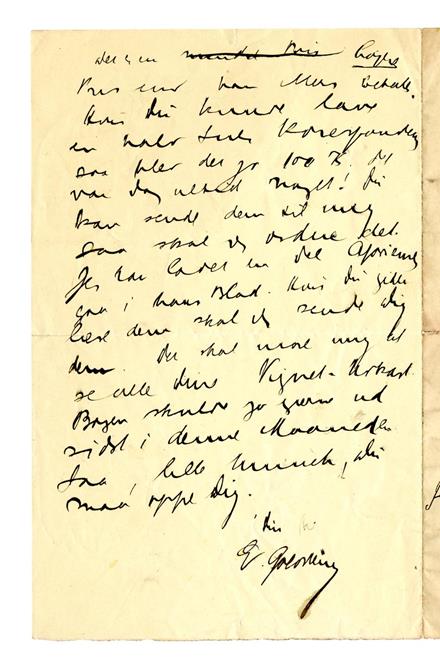 det er en mindre Pris højere
Pris end han Max betalte.
Hvis Du kunde lave
en halv Side Korrespondence
saa blev det jo 100 Kr. Det
var dog altid noget! Du
kan sende dem til mig
saa skal jeg ordne det.
Jeg har ladet en Del Aforismer
gaa i hans Blad. Hvis Du gider
læse dem skal jeg sende Dig
dem. Det skal more mig at
se alle dine Vignet-Udkast.
Bogen skulde jo gerne ud
sidst i denne Maaned.
Saa, lille Munch, Du
maa oppe Dig.
Din
E. Goldstein